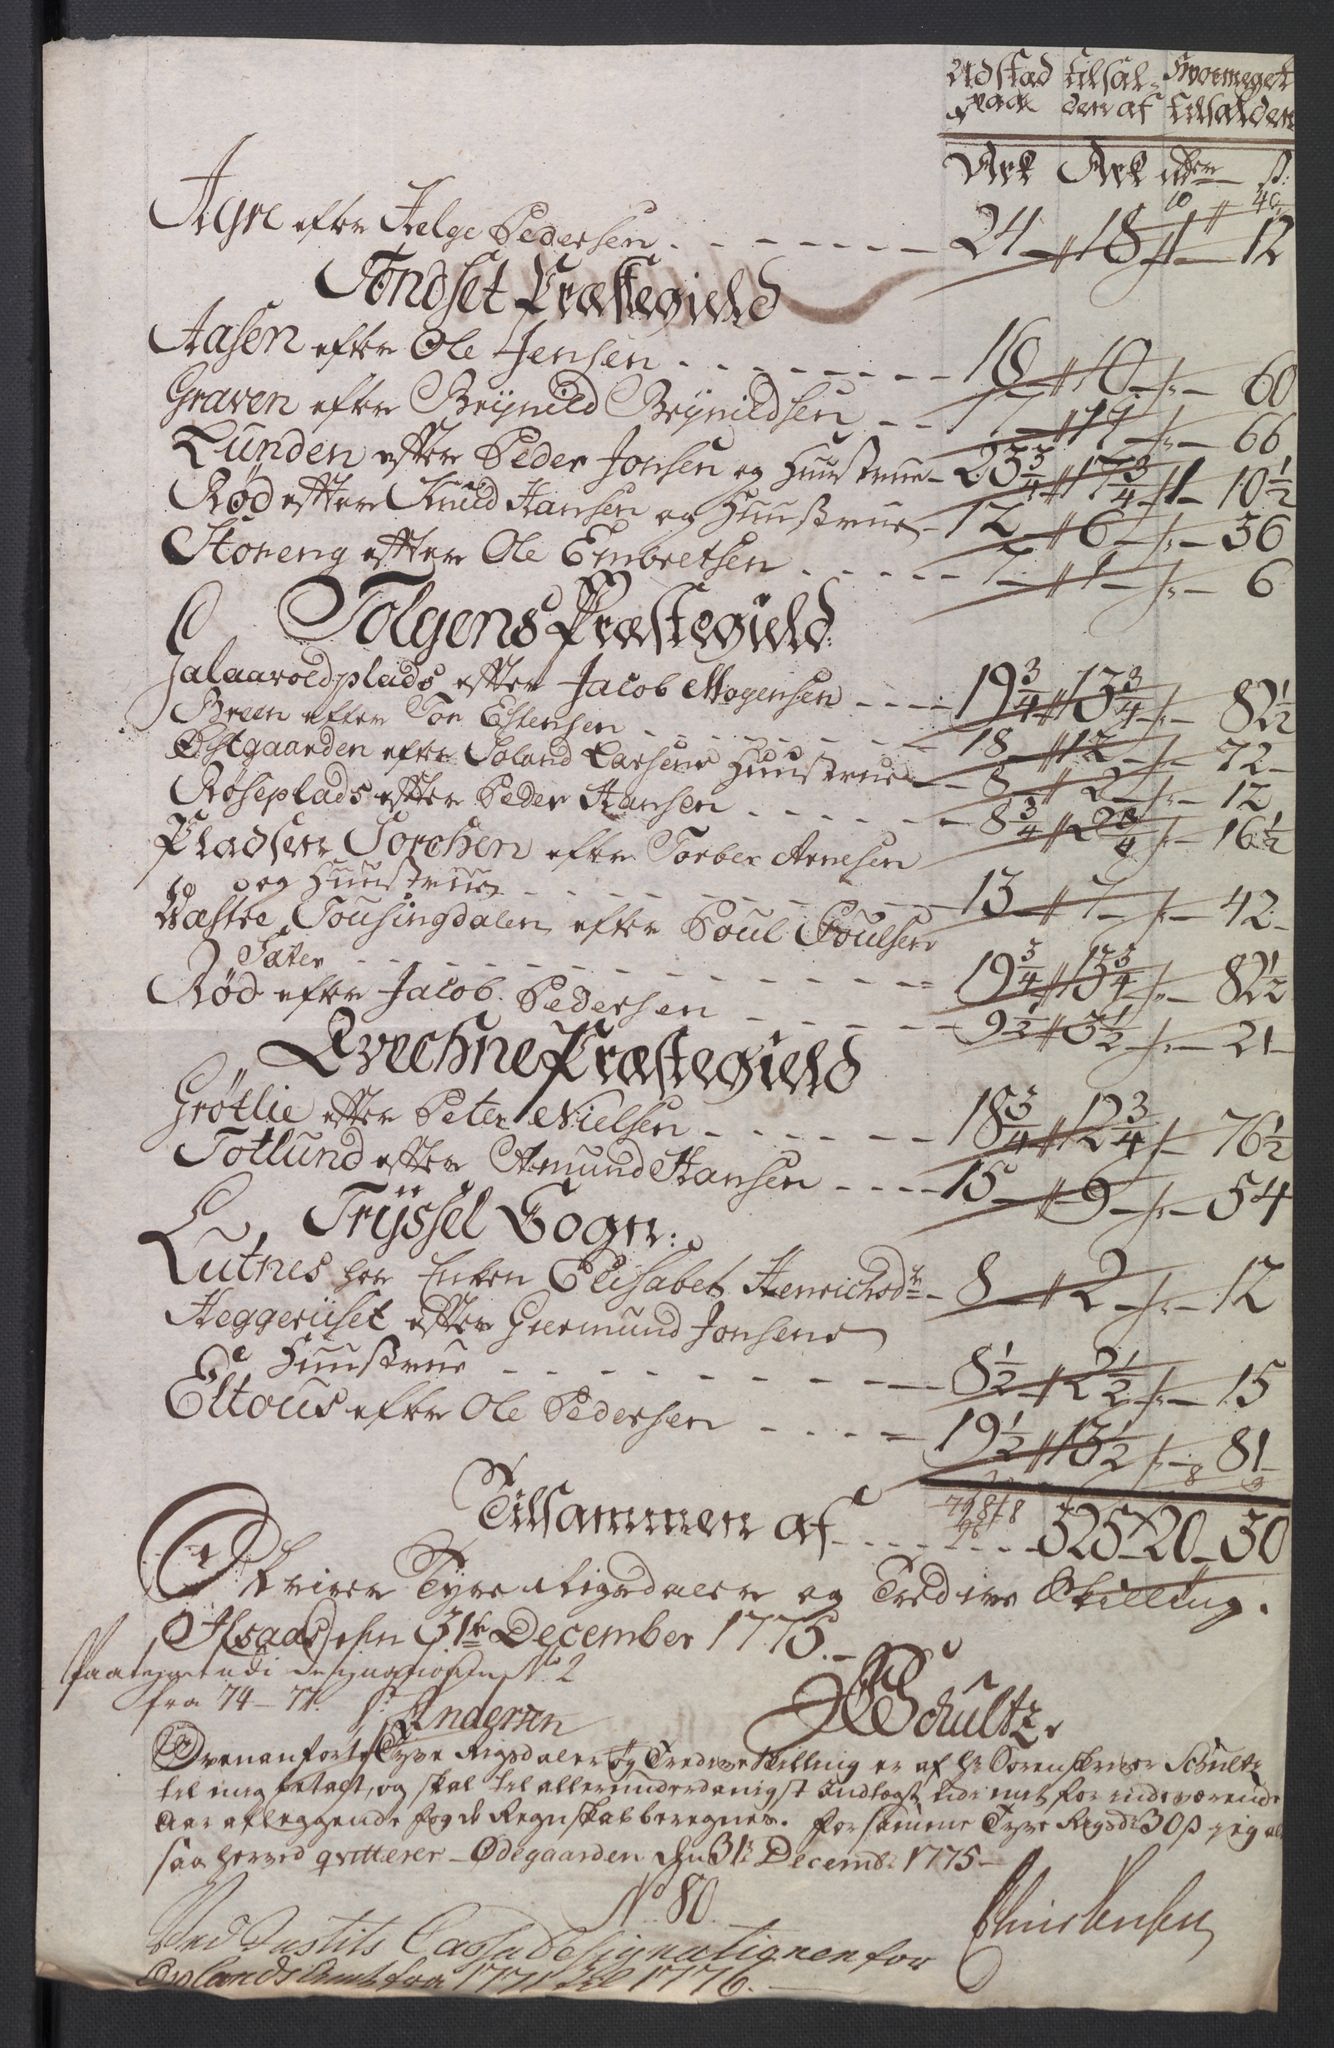 Udstæd paa | tilfal- den af | Hvormeget tilfalden
Ark | Ark | Rdr | ß:
10 | 40
Agre efter Helge Pedersen - - - - 24 - 18 - 1 - 12
Tøndset Præstegield
Aasen efter Ole Jensen - - - - 16 - 10 - „ - 60
Graven efter Brynild Brynildsen - - 17 - 11 - „ - 66
Lunden efter Peder Jonsen og Hustrue - 23¾ - 17¾ - 1 - 10½
Rød efter Knud Hansen og Huustrue - 12 - 6 - „ - 36
Storeng efter Ole Embretsen - - - - 7 - 1 - „ - 6
Tolgens Præstegield:
Jalaavoldplads efter Jacob Mogensen - - - 19¾ - 13¾ - „ - 82½
Breen efter Tor Estensen - - - - 18 - 12 - „ - 72
Østgaarden efter Joland Larsens Huustrue - 8 - 2 - „ - 12
Røseplads efter Peder Hansen - - - - 8¾ - 2¾ - „ - 16½
Pladsen Torchen efter Torber Arnesen
og Huustrue - - - - 13 - 7 - „ - 42
Væstre Tousingdalen efter Poul Poulsen
Sæter - - - - 19¾ - 13¾ - „ - 82½
Rød efter Jacob Pedersen - - - - 9½ - 3½ - „ - 21
Qvechne Præstegield
Grøtlie efter Peter Nielsen - - - - 18¾ - 12¾ - „ - 76½
Totlund efter Amund Hansen - - - - 15 - 9 - „ - 54
Tryssel Sogn:
Lutnes hos Enken Elisabet Henrichsdtr - 8 - 2 - „ - 12
Heggeriiset efter Giermund Jonsens
Huustrue - - - - 8½ - 2½ - „ - 15
Eltous efter Ole Pedersen - - - - 19½ - 13½ - „ - 81
Tilsammen af - - - - 325 - 20 - 30
Skriver Tyve Rigsdaler og Tredive Skilling.
Usaas den 31te December 1775.
Paategnet udi Designationen No 2
fra 74 - 77. Andersen
Schultz
Ovenanførte Tyve Rigsdaler og Tredive Skilling er af Hr Sorenskriver Schultz
til mig betalt, og skal til allerunderdanigst Indtægt udi mit for indeværende
Aar aflæggende Fogde Regnskab beregnes. forsamme Tyve Rigsdr 30 ß jeg al
saa herved qvitterer - Ødegaarden den 31te Decembr 1775 -
No 80.
Ved Justits Cassa Designationen for
Oplands Amt fra 1771 til 1776.